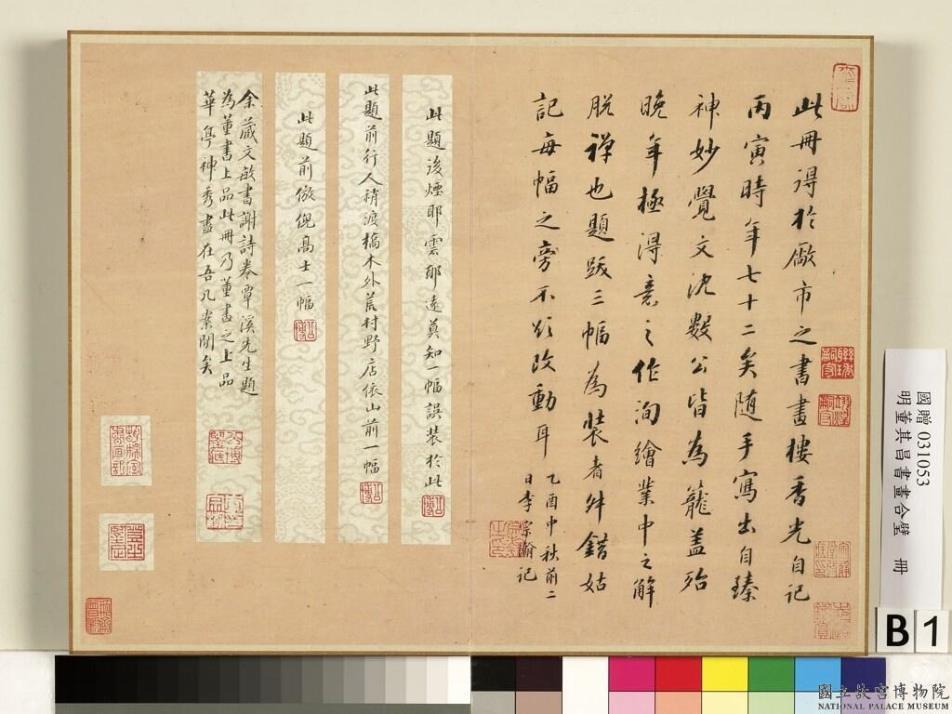 此冊得於厰市之書畫樓香光自記
丙寅時年七十二矣随手寫出自臻
神妙覺文沈數公皆為籠蓋殆
晚年極得意之作洵繪業中之解
脱禪也題跋三幅為裝者舛錯姑
記每幅之旁不必改動耳 乙酉中秋前二
日李宗瀚記
此題後煙耶雲耶遠莫知一幅誤装於此
此題前行人稍渡橋木外荒村野店依山前一幅
此題前倣倪高士一幅
余蔵文敏書謝詩卷覃溪先生題
為董書上品此冊乃董畫之上品
華亭神秀盡在吾几案間矣
國贈 031053
明董其昌書畫合璧 冊
B 1
國立故宮博物院
NATIONAL PALACE MUSEUM